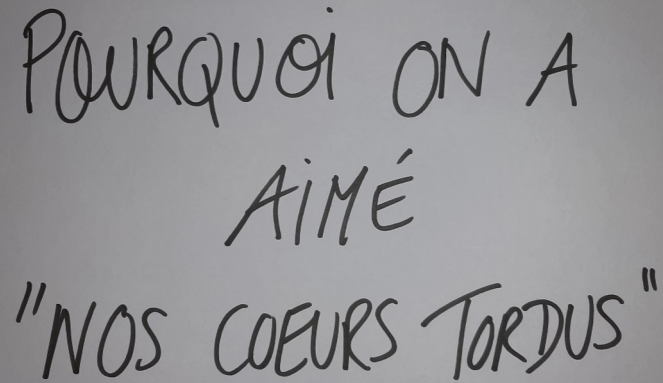 POURQUOI ON A
AIMÉ
"NOS COEURS TORDUS"